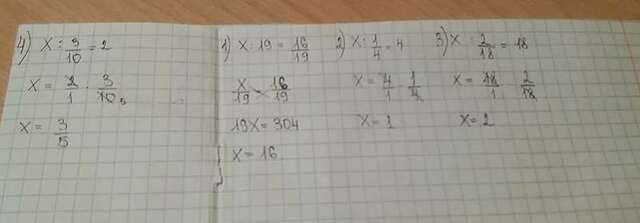 4) x : 3/10 = 2
x = 2/1 · 3/10 5
x = 3/5
1) x : 19 = 16/19
x/19 16/19
19x = 304
x = 16
2) x : 1/4 = 4
x = 4/1 · 1/4
x = 1
3) x : 2/18 = 18
x = 18/1 · 2/18
x = 2